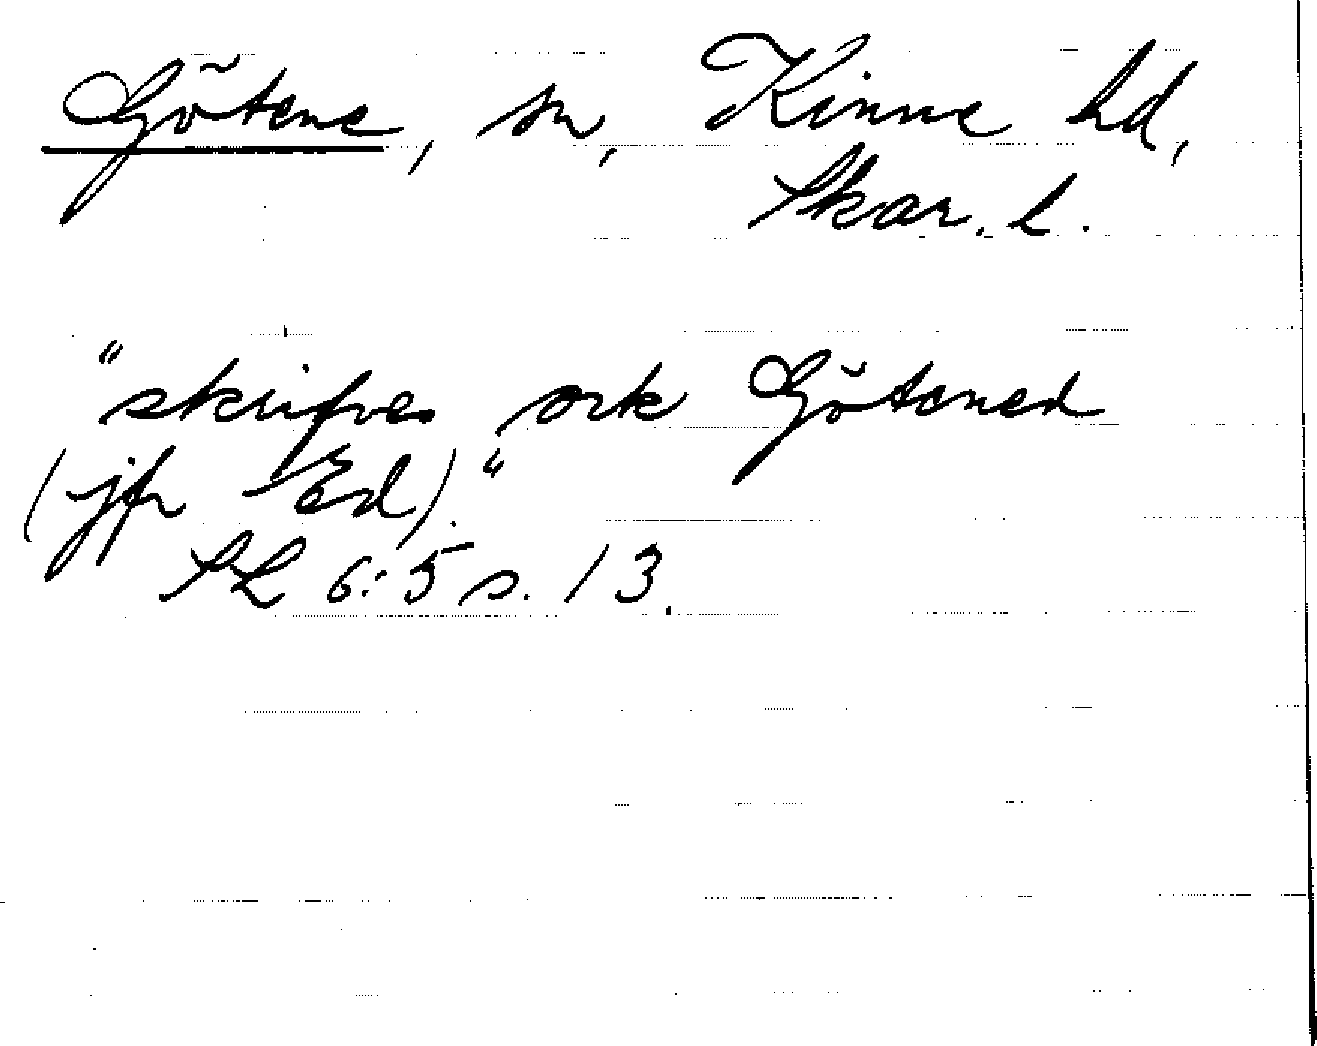 Götene, sn, Kinne hd,
Skar. l.
"skrifves ock Götened
(jfr Ed)."
SL 6:5 s. 13.